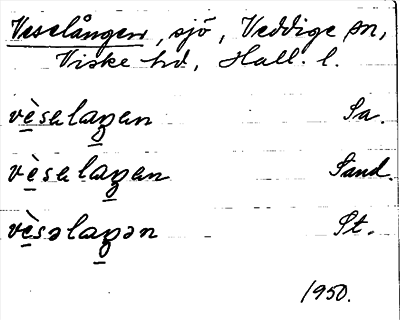 Veselången, sjö, Veddige sn,
Viske hd, Hall. l.
vè̱selaŋ̱en Sa.
vè̱selaŋ̱en Sand.
vè̱səlaŋ̱ən St.
1950.